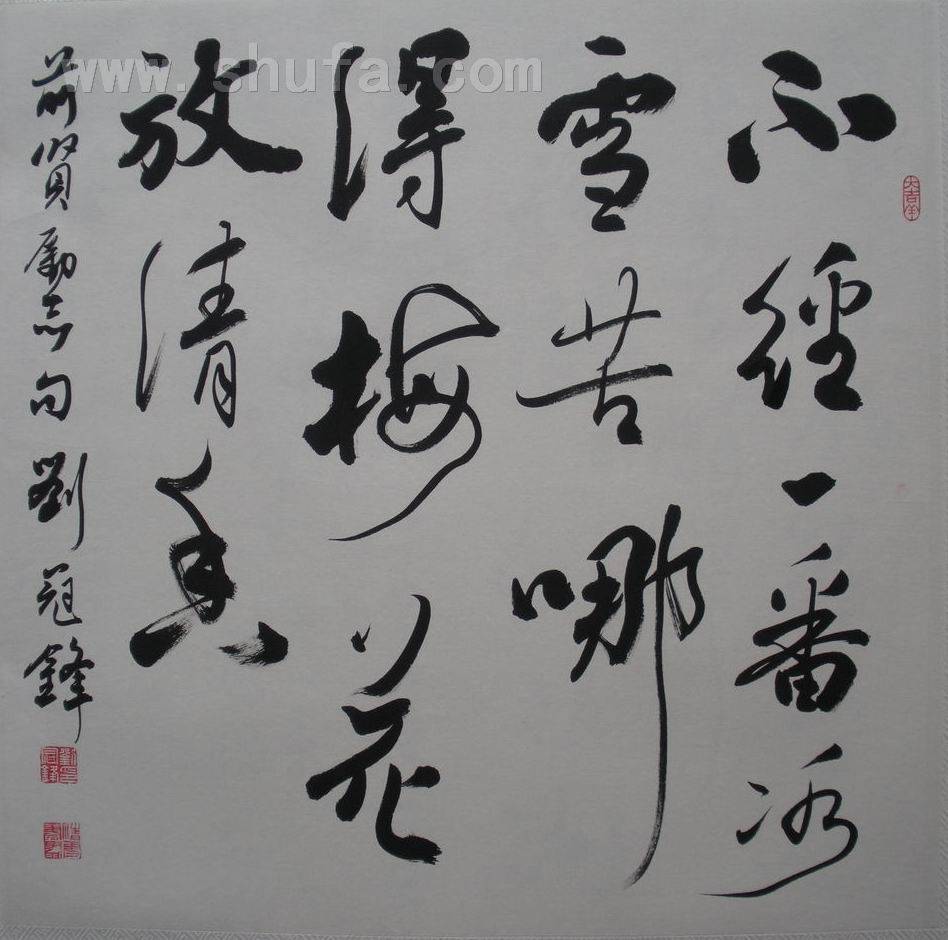 不經一番冰
雪苦哪
得梅花
放清香
前賢勵志句 劉冠鋒
大吉年
www.shufa.com